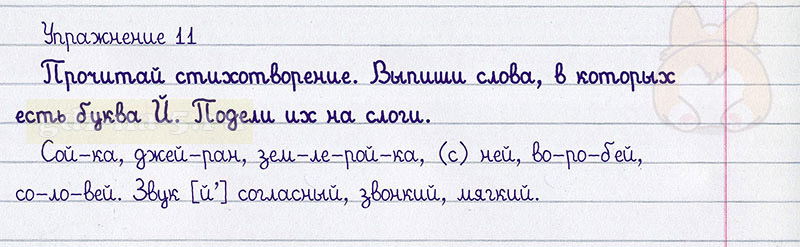 Упражнение 11
Прочитай стихотворение. Выпиши слова, в которых
есть буква Й. Подели их на слоги.
Сой-ка, джей-ран, зем-ле-рой-ка, (с) ней, во-ро-бей,
со-ло-вей. Звук [й'] согласный, звонкий, мягкий.